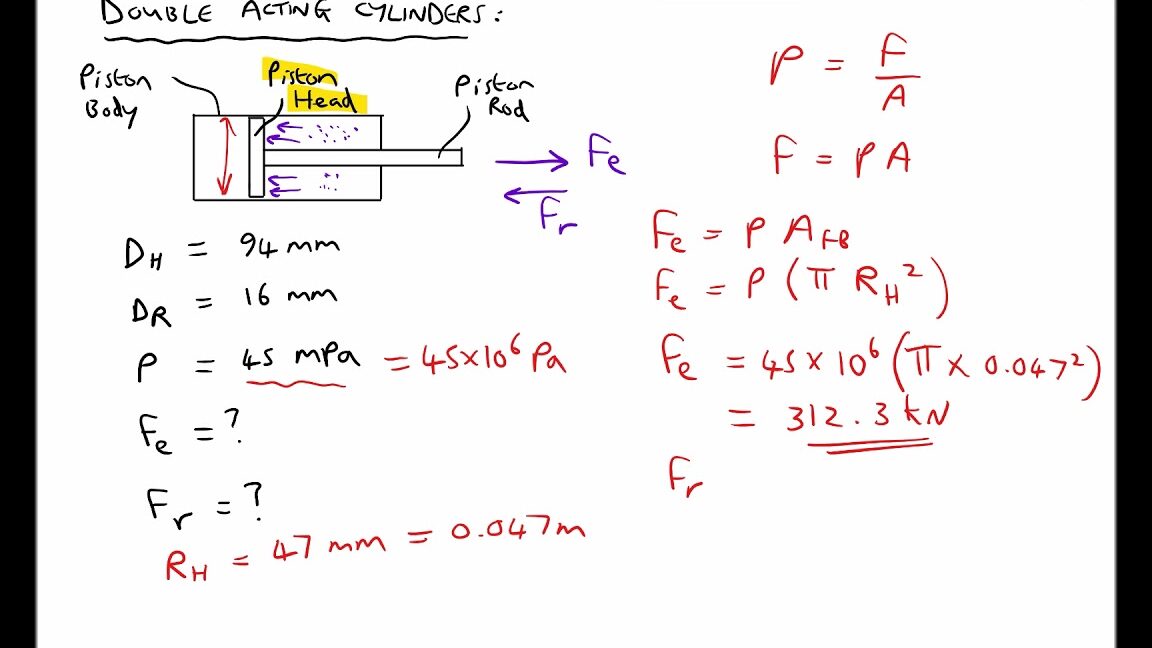 DOUBLE ACTING CYLINDERS:
Piston Body
Piston Head
Piston Rod
Fe
Fr
DH = 94 mm
DR = 16 mm
P = 45 mPa = 45×10⁶ Pa
Fe = ?
Fr = ?
RH = 47 mm = 0.047m
P = F/A
F = PA
Fe = P AFB
Fe = P (π RH²)
Fe = 45 × 10⁶ (π × 0.047²)
= 312.3 kN
Fr